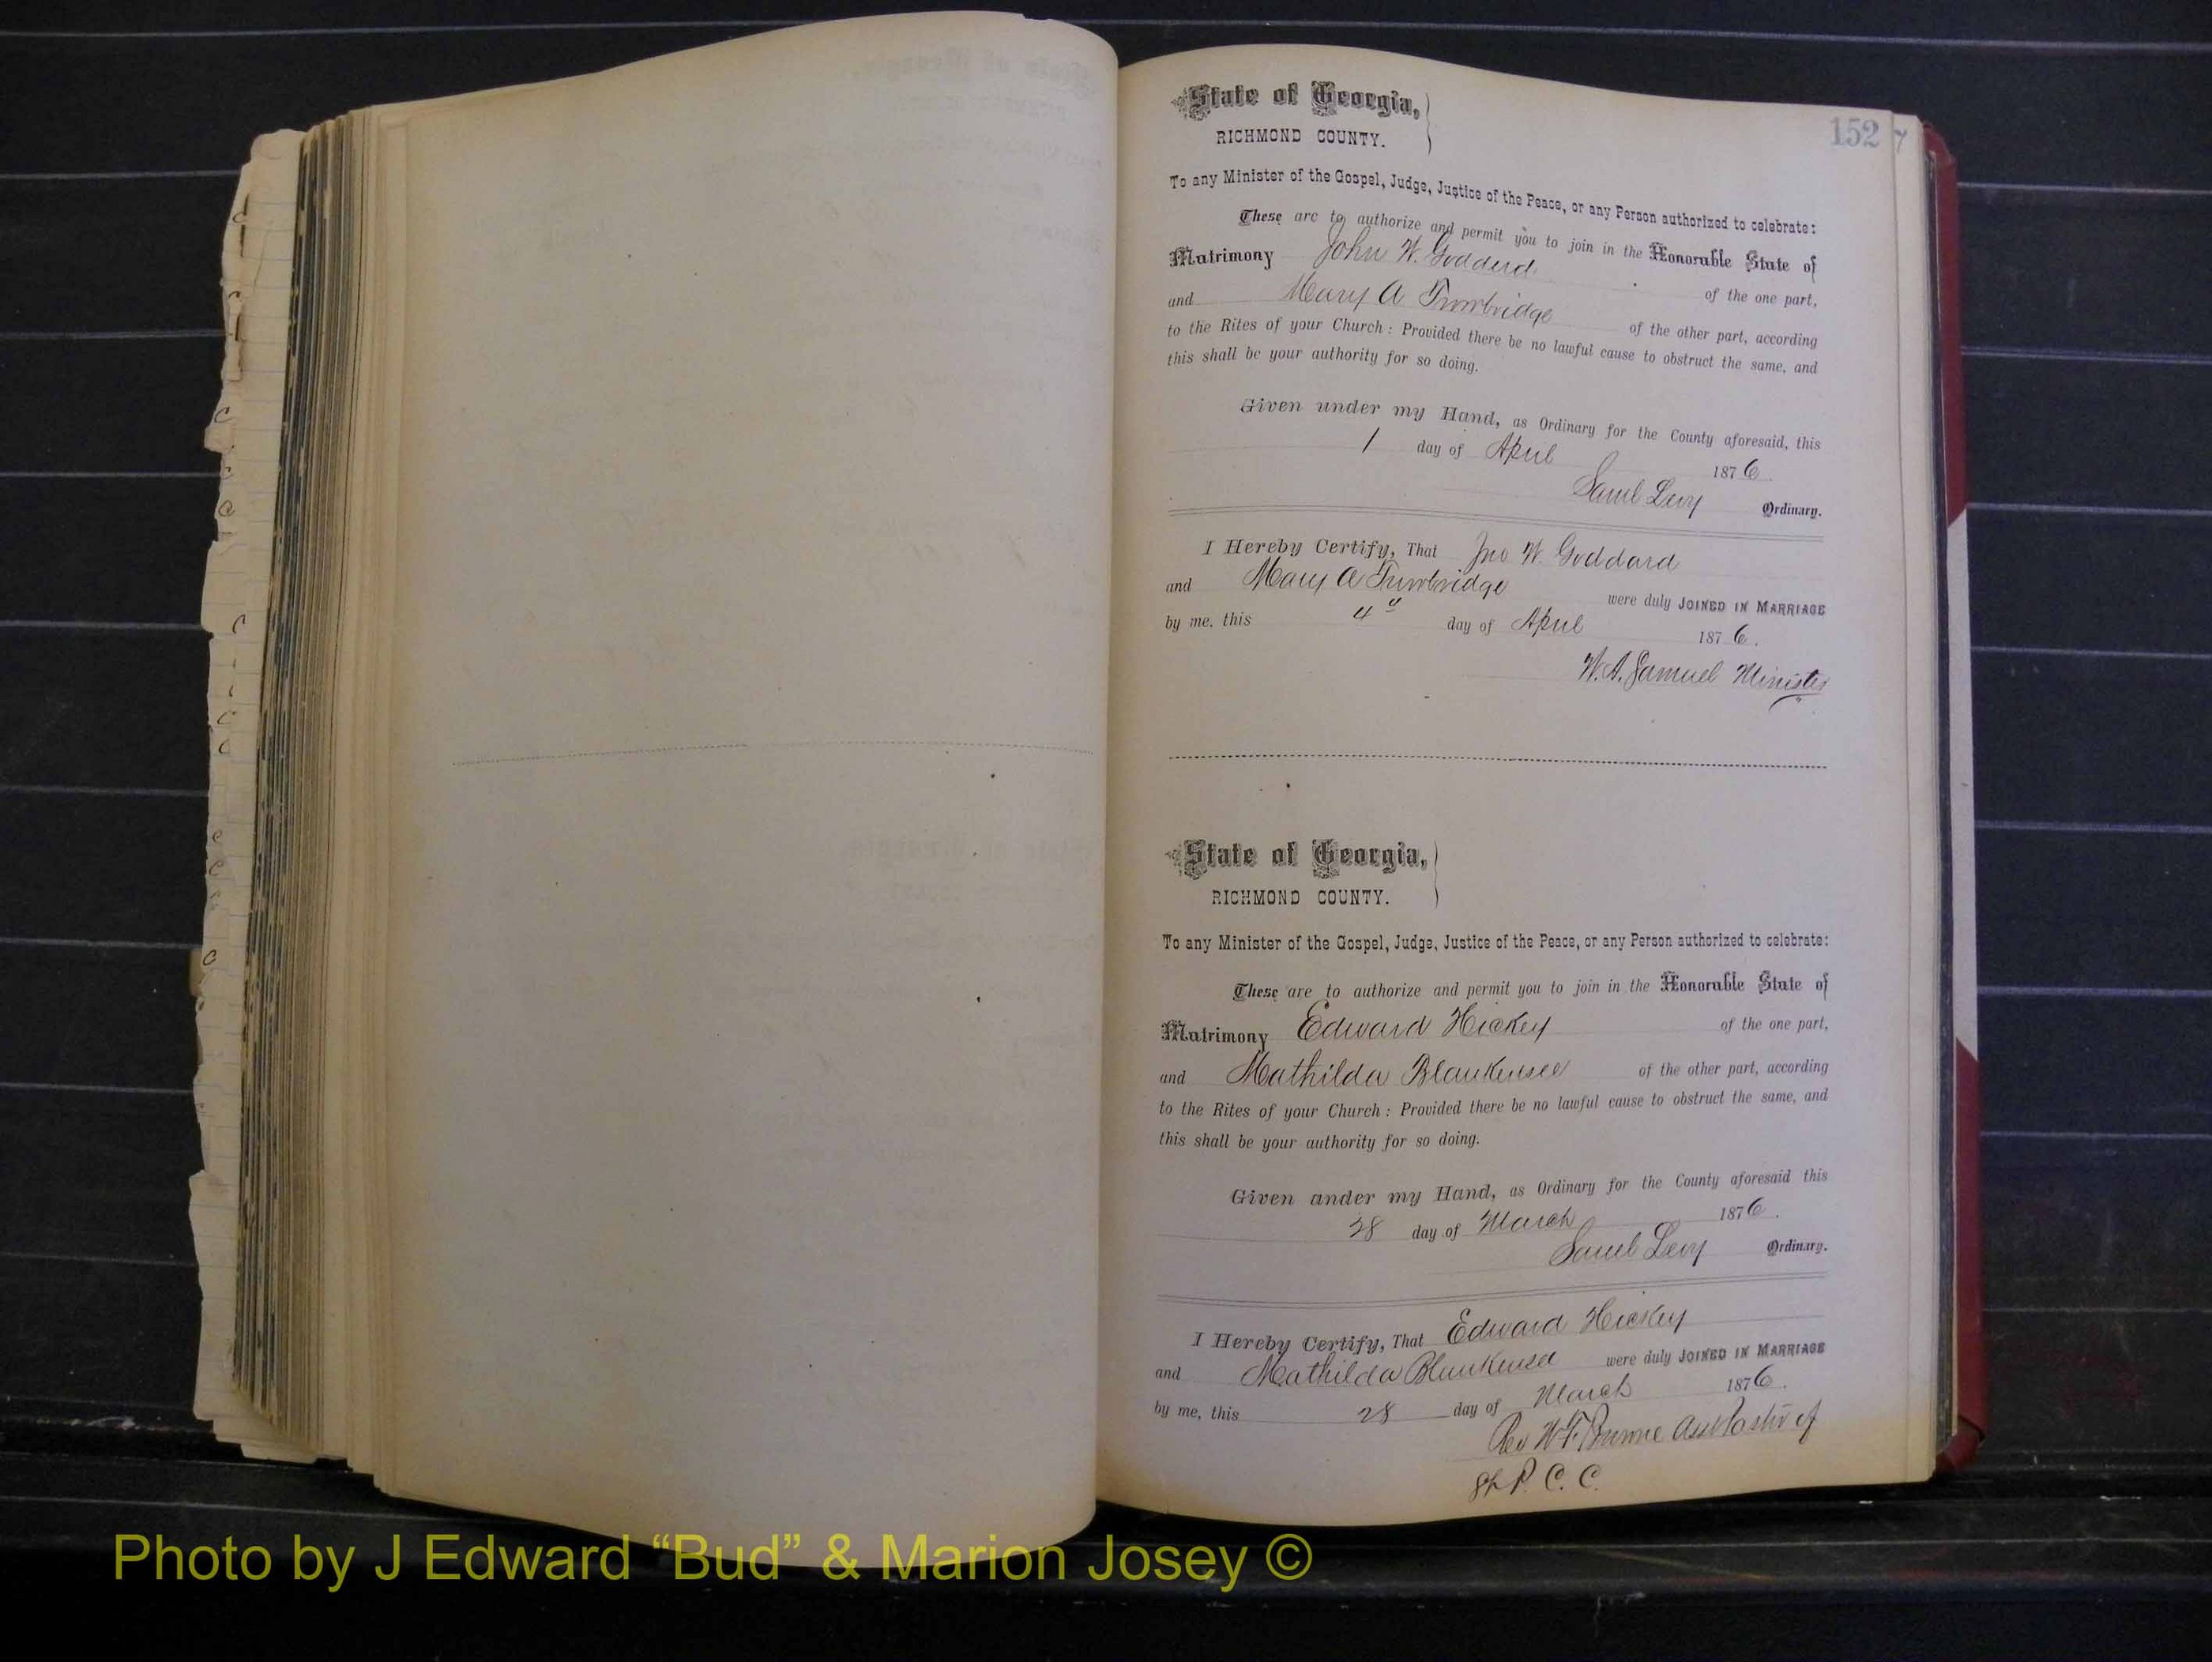 152
State of Georgia,
RICHMOND COUNTY.
To any Minister of the Gospel, Judge, Justice of the Peace, or any Person authorized to celebrate:
These are to authorize and permit you to join in the Honorable State of
Matrimony John W. Godderd of the one part,
and Mary A Trowbridge of the other part, according
to the Rites of your Church: Provided there be no lawful cause to obstruct the same, and
this shall be your authority for so doing.
Given under my Hand, as Ordinary for the County aforesaid, this
1 day of April 1876.
Saml Levy Ordinary.
I Hereby Certify, That Jno W. Goddard
and Mary A Trowbridge were duly JOINED IN MARRIAGE
by me, this 4" day of April 1876.
W. A. Samuel Minister
State of Georgia,
RICHMOND COUNTY.
To any Minister of the Gospel, Judge, Justice of the Peace, or any Person authorized to celebrate:
These are to authorize and permit you to join in the Honorable State of
Matrimony Edward Hickey of the one part,
and Mathilda Blankensee of the other part, according
to the Rites of your Church: Provided there be no lawful cause to obstruct the same, and
this shall be your authority for so doing.
Given under my Hand, as Ordinary for the County aforesaid this
28 day of March 1876.
Saml Levy Ordinary.
I Hereby Certify, That Edward Hickey
and Mathilda Blankensee were duly JOINED IN MARRIAGE
by me, this 28 day of March 1876.
Rev W. F. Asst Pastor of
St P. C. C.
Photo by J Edward “Bud” & Marion Josey ©